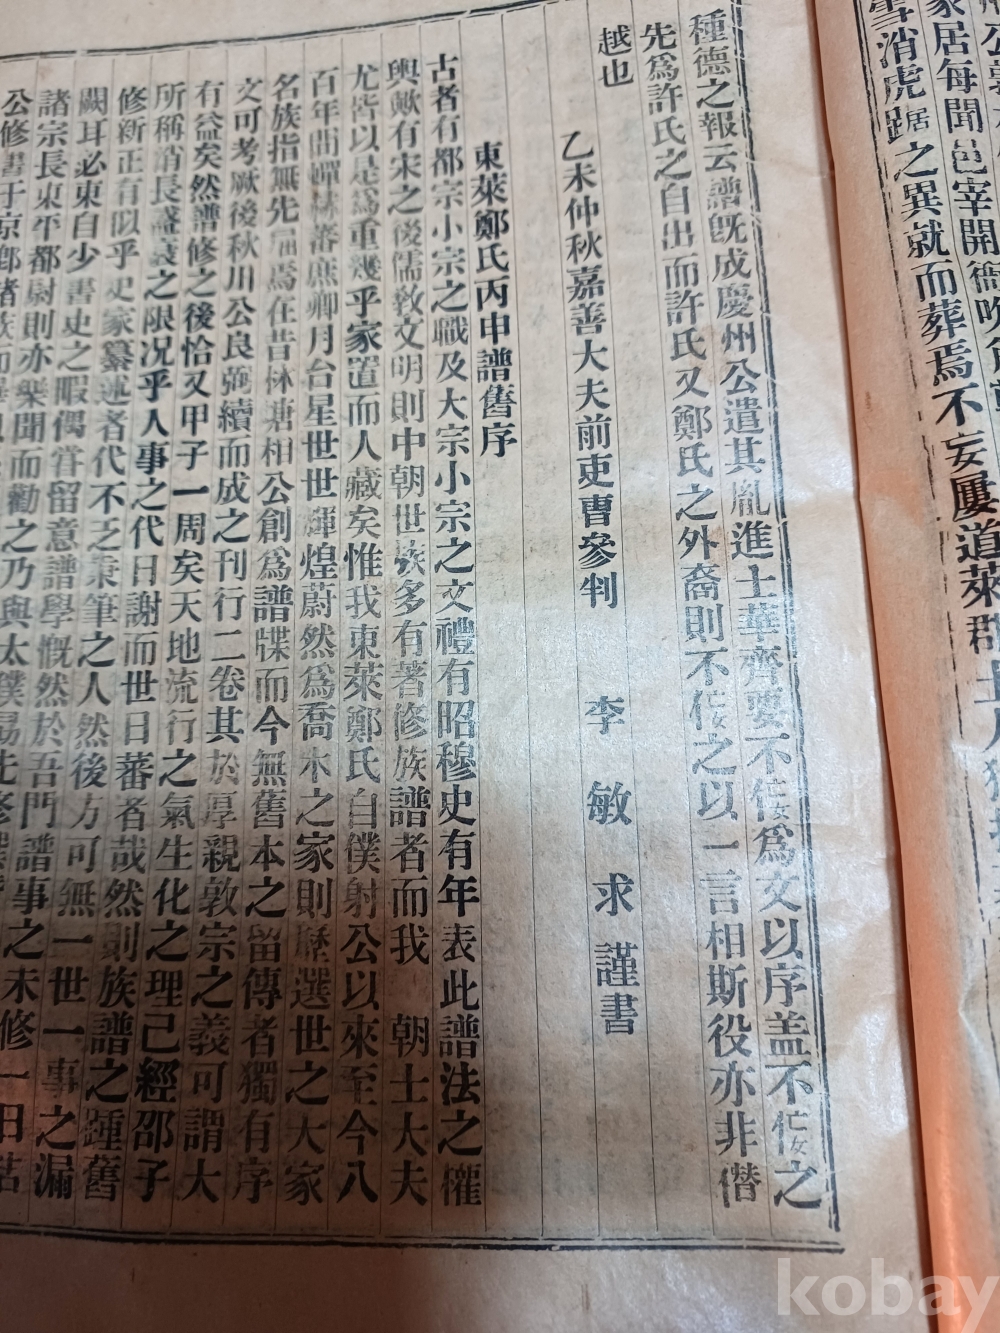 公墓
家居每聞邑宰開衙吹
消虎距之異就而葬焉不妄屢道萊群
種德之報云譜旣成慶州公遣其胤進士華齊要不佞爲文以序盖不佞之
先爲許氏之自出而許氏又鄭氏之外裔則不佞之以一言相斯役亦非僭
越也
乙未仲秋嘉善大夫前吏曹參判 李敏求謹書
東萊鄭氏丙申譜舊序
古者有都宗小宗之職及大宗小宗之文禮有昭穆史有年表此譜法之權
輿歟有宋之後儒敎文明則中朝世族多有著修族譜者而我 朝士大夫
尤皆以是爲重幾乎家置而人藏矣惟我東萊鄭氏自僕射公以來至今八
百年間蟬赫蕃庶卿月台星世世輝煌蔚然爲喬木之家則歷選世之大家
名族指無先出焉在昔林塘相公創爲譜牒而今無舊本之留傳者獨有序
文可考厥後秋川公良弼續而成之刊行二卷其於厚親敦宗之義可謂大
有益矣然譜修之後恰又甲子一周矣天地流行之氣生化之理己經邵子
所稱消長盛衰之限况乎人事之代日謝而世日蕃者哉然則族譜之踵舊
修新正有似乎史家纂述者代不乏秉筆之人然後方可無一世一事之漏
闕耳必東自少書史之暇偶嘗留意譜學慨然於吾門譜事之未修一日
諸宗長東平都尉則亦樂聞而勸之乃與太僕
公修書于京鄕諸族
kobay